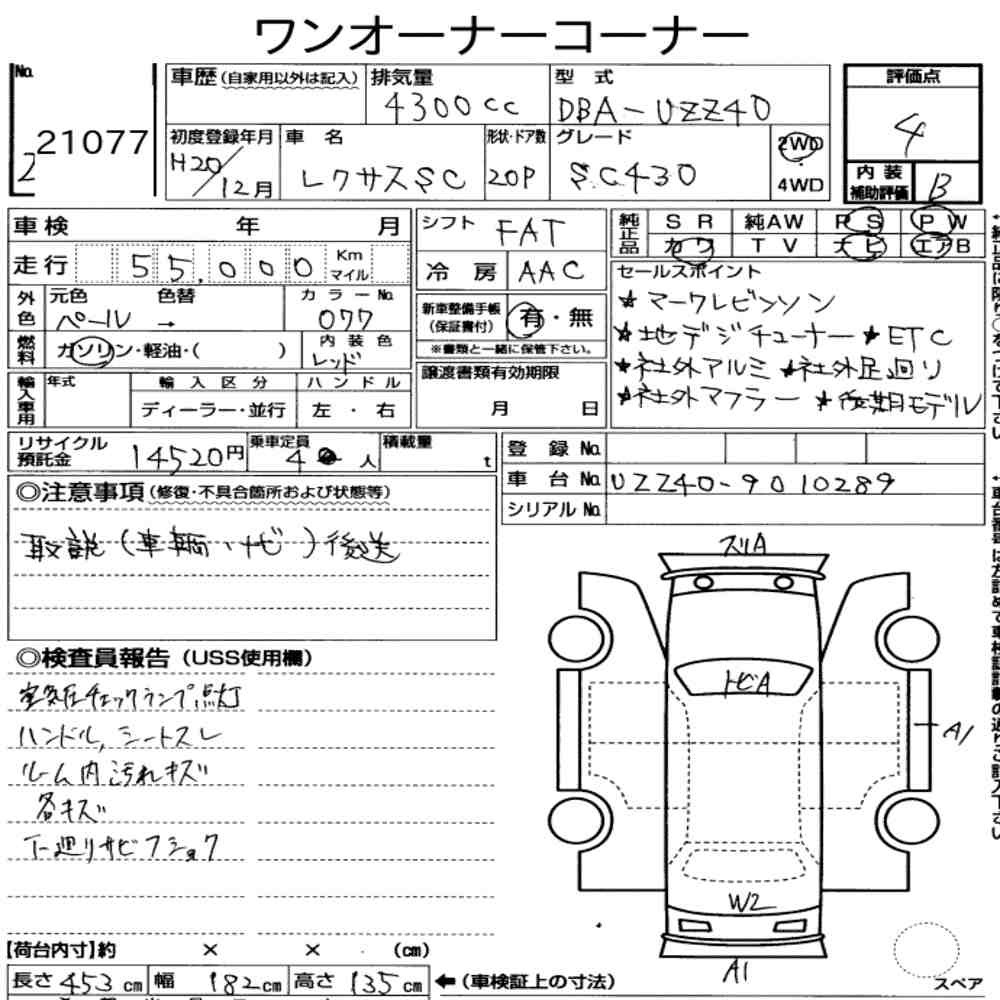 ワンオーナーコーナー
No. 21077
2
車歴 (自家用以外は記入)
排気量 4300cc
型式 DBA-UZZ40
評価点 4
初度登録年月 H20/12月
車名 レクサスSC
形状・ドア数 2DP
グレード SC430
2WD
4WD
内装補助評価 B
車検 年 月
走行 55,000 Km マイル
外色 元色 色替 カラーNo.
ペール → 077
燃料 ガソリン・軽油・( )
内装色 レッド
輸入車用 年式 輸入区分 ハンドル
ディーラー・並行 左・右
シフト FAT
冷房 AAC
新車整備手帳(保証書付) 有・無
※書類と一緒に保管下さい。
譲渡書類有効期限
月 日
純正品 SR 純AW PS PW
カワ TV ナビ エアB
セールスポイント
★マークレビンソン
★地デジチューナー ★ETC
★社外アルミ ★社外足廻り
★社外マフラー ★後期モデル
リサイクル預託金 14520円
乗車定員 4人
積載量 t
登録No.
車台No. UZZ40-9010289
シリアルNo.
◎注意事項 (修復・不具合箇所および状態等)
取説(車輌・ナビ)後送
◎検査員報告 (USS使用欄)
空気圧チェックランプ点灯
ハンドル,シートスレ
ルーム内汚れキズ
各キズ
下廻りサビフショク
スリA
トビA
A1
W2
A1
スペア
【荷台内寸】約 × × (cm)
長さ 453 cm 幅 182 cm 高さ 135 cm ←(車検証上の寸法)